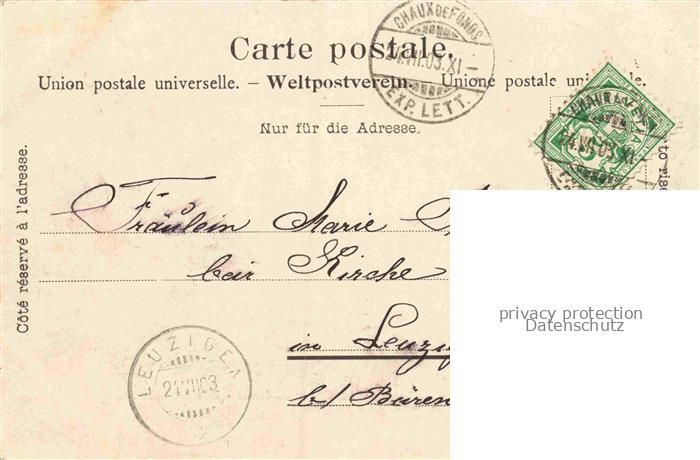 Carte postale.
Union postale universelle. – Weltpostverein. – Unione postale universale.
Nur für die Adresse.
Côté réservé à l'adresse.
CHAUX DE FONDS
24.VII.03.XI–
EXP. LETT.
24.VII.03.XI
5
Fräulein Marie
beir Kirche
in Leuzig
b/ Büren
LEUZIGEN
24 VII 03
privacy protection
Datenschutz